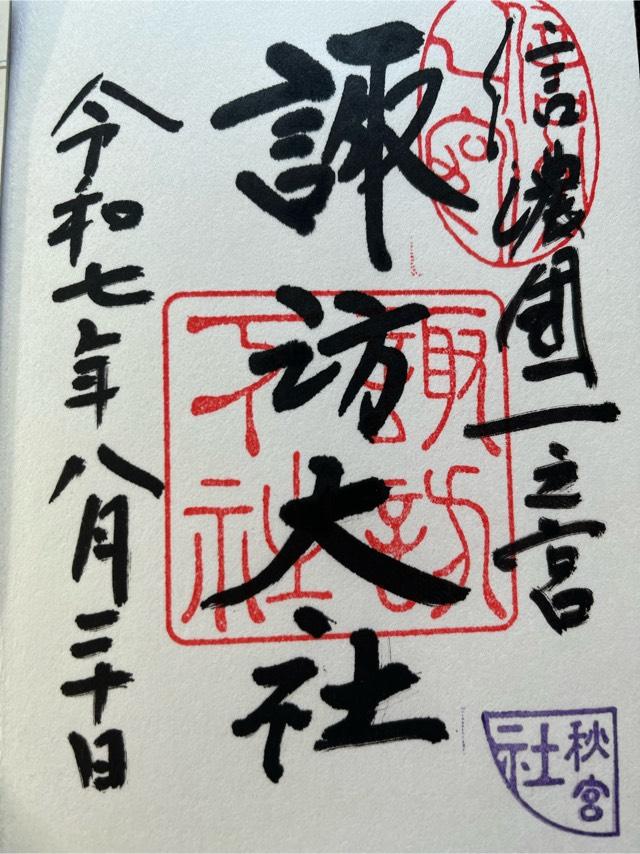 信濃國一之宮
諏訪大社
諏訪
下社
令和七年八月三十日
秋宮
社